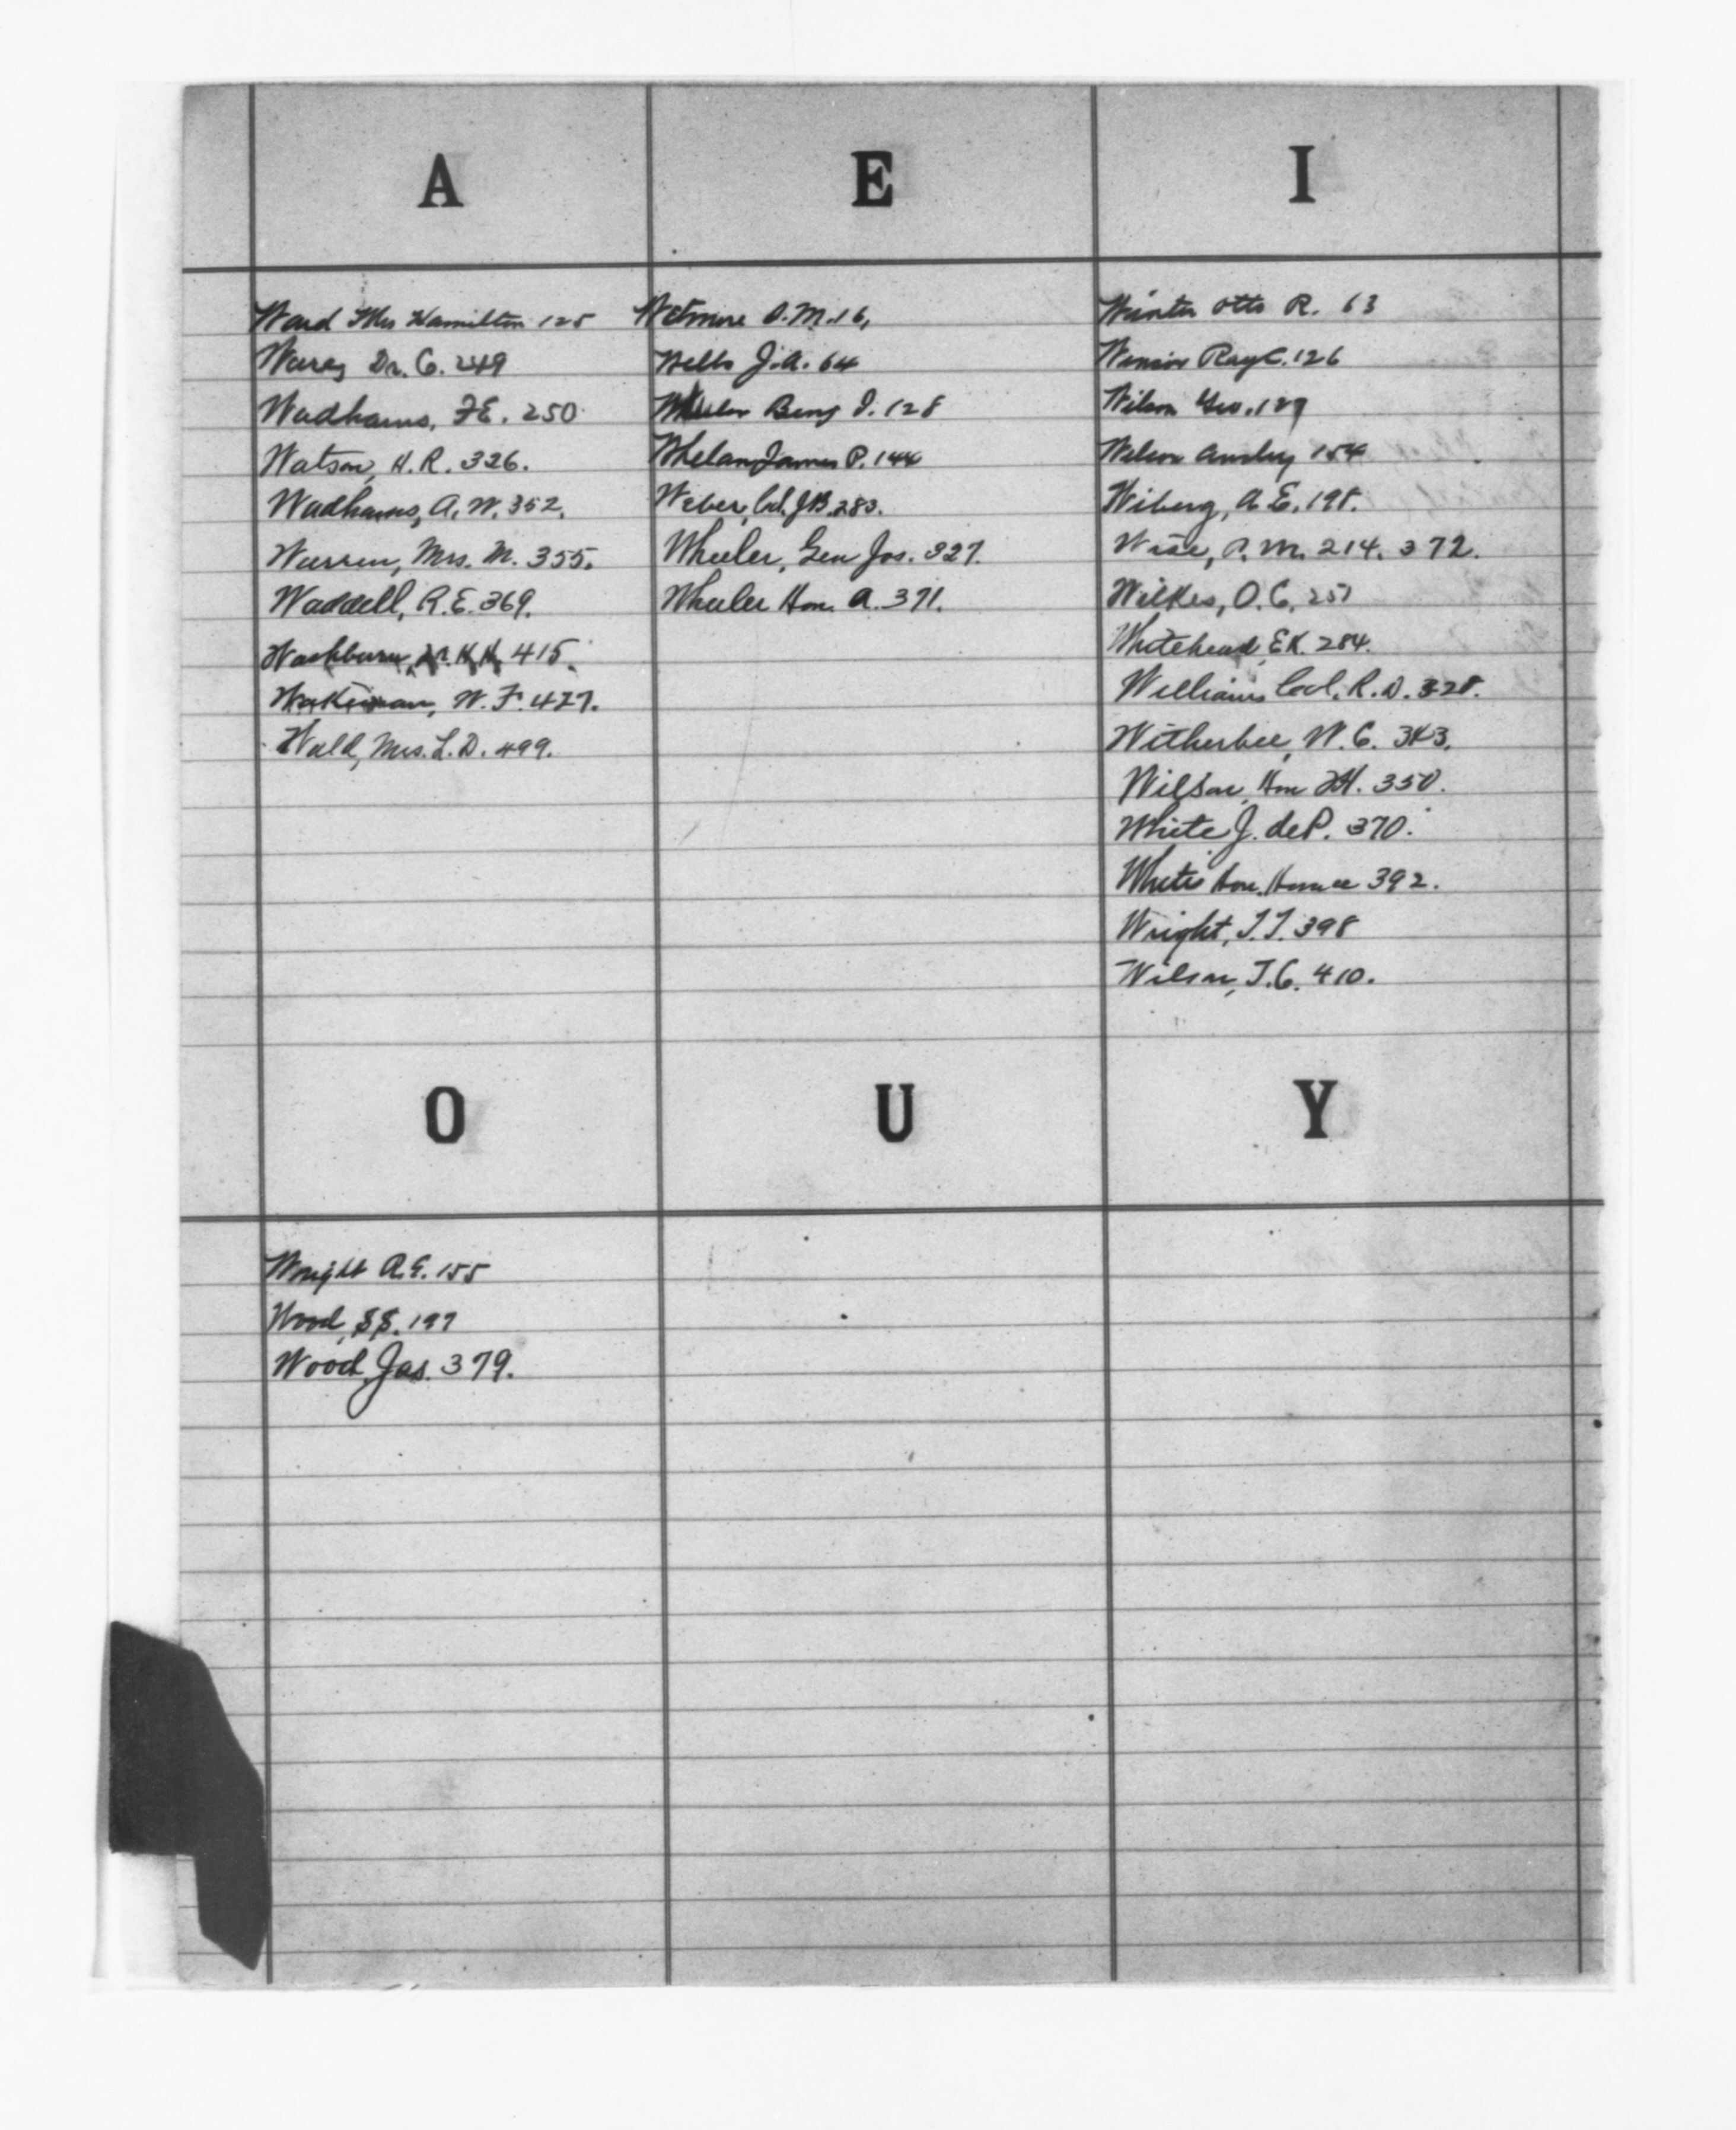 A
Ward Mrs Hamilton 125
Dr. C. 249
Wadhams, F.E. 250
Watson, H.R. 326.
Wadhams, A.W. 352.
Warren, Mrs. M. 355.
Waddell, R.E. 369.
Washburn, Dr. H.H. 415.
Wakeman, W.F. 477.
Wald, Mrs. L.D. 499.
E
Wetmore O.M. 16,
Wells J.A. 64
Wheeler Benj I. 128
Whelan James P. 144
Weber, Col. J.B. 283.
Wheeler, Gen Jos. 327.
Wheeler Hon. A. 371.
I
Winter Otto R. 63
Ray C. 126
Wilson Geo. 127
Wilson 154
Wiberg, A.E. 198.
Wise, P.M. 214. 372.
Wilkes, O.C. 257
Whitehead, E.K. 284.
Williams Col. R.D. 328.
Witherbee, W.C. 343.
Wilson, Hon 350.
White J. deP. 370.
White Hon. Horace 392.
Wright, T.T. 398
Wilson, T.C. 410.
O
Wright A.E. 155
Wood, S.S. 197
Wood, Jas. 379.
U
Y